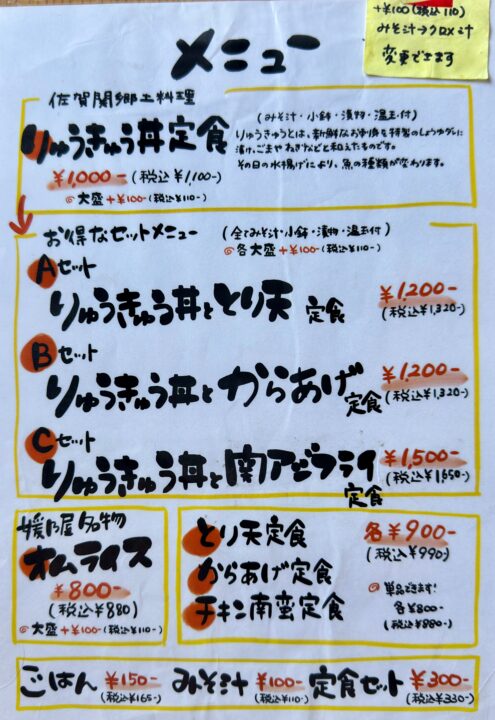 +¥100(税込110)
みそ汁→クロメ汁
変更できます
メニュー
佐賀関郷土料理
りゅうきゅう丼定食
(みそ汁・小鉢・漬物・温玉付)
りゅうきゅうとは、新鮮なお刺身を特製のしょうゆダレに
漬け、ごまやねぎなどと和えたものです。
その日の水揚げにより、魚の種類が変わります。
¥1,000-(税込¥1,100-)
大盛+¥100-(税込¥110-)
お得なセットメニュー
(全てみそ汁・小鉢・漬物・温玉付)
各大盛+¥100-(税込¥110-)
Aセット
りゅうきゅう丼ととり天 定食
¥1,200-
(税込¥1,320-)
Bセット
りゅうきゅう丼とからあげ定食
¥1,200-
(税込¥1,320-)
Cセット
りゅうきゅう丼と関アジフライ定食
¥1,500-
(税込¥1,650-)
媛乃屋名物
オムライス
¥800-
(税込¥880)
大盛+¥100-(税込¥110-)
とり天定食
からあげ定食
チキン南蛮定食
各¥900-
(税込¥990-)
単品できます!
各¥800-
(税込¥880-)
ごはん ¥150-
(税込¥165-)
みそ汁 ¥100-
(税込¥110-)
定食セット ¥300-
(税込¥330-)